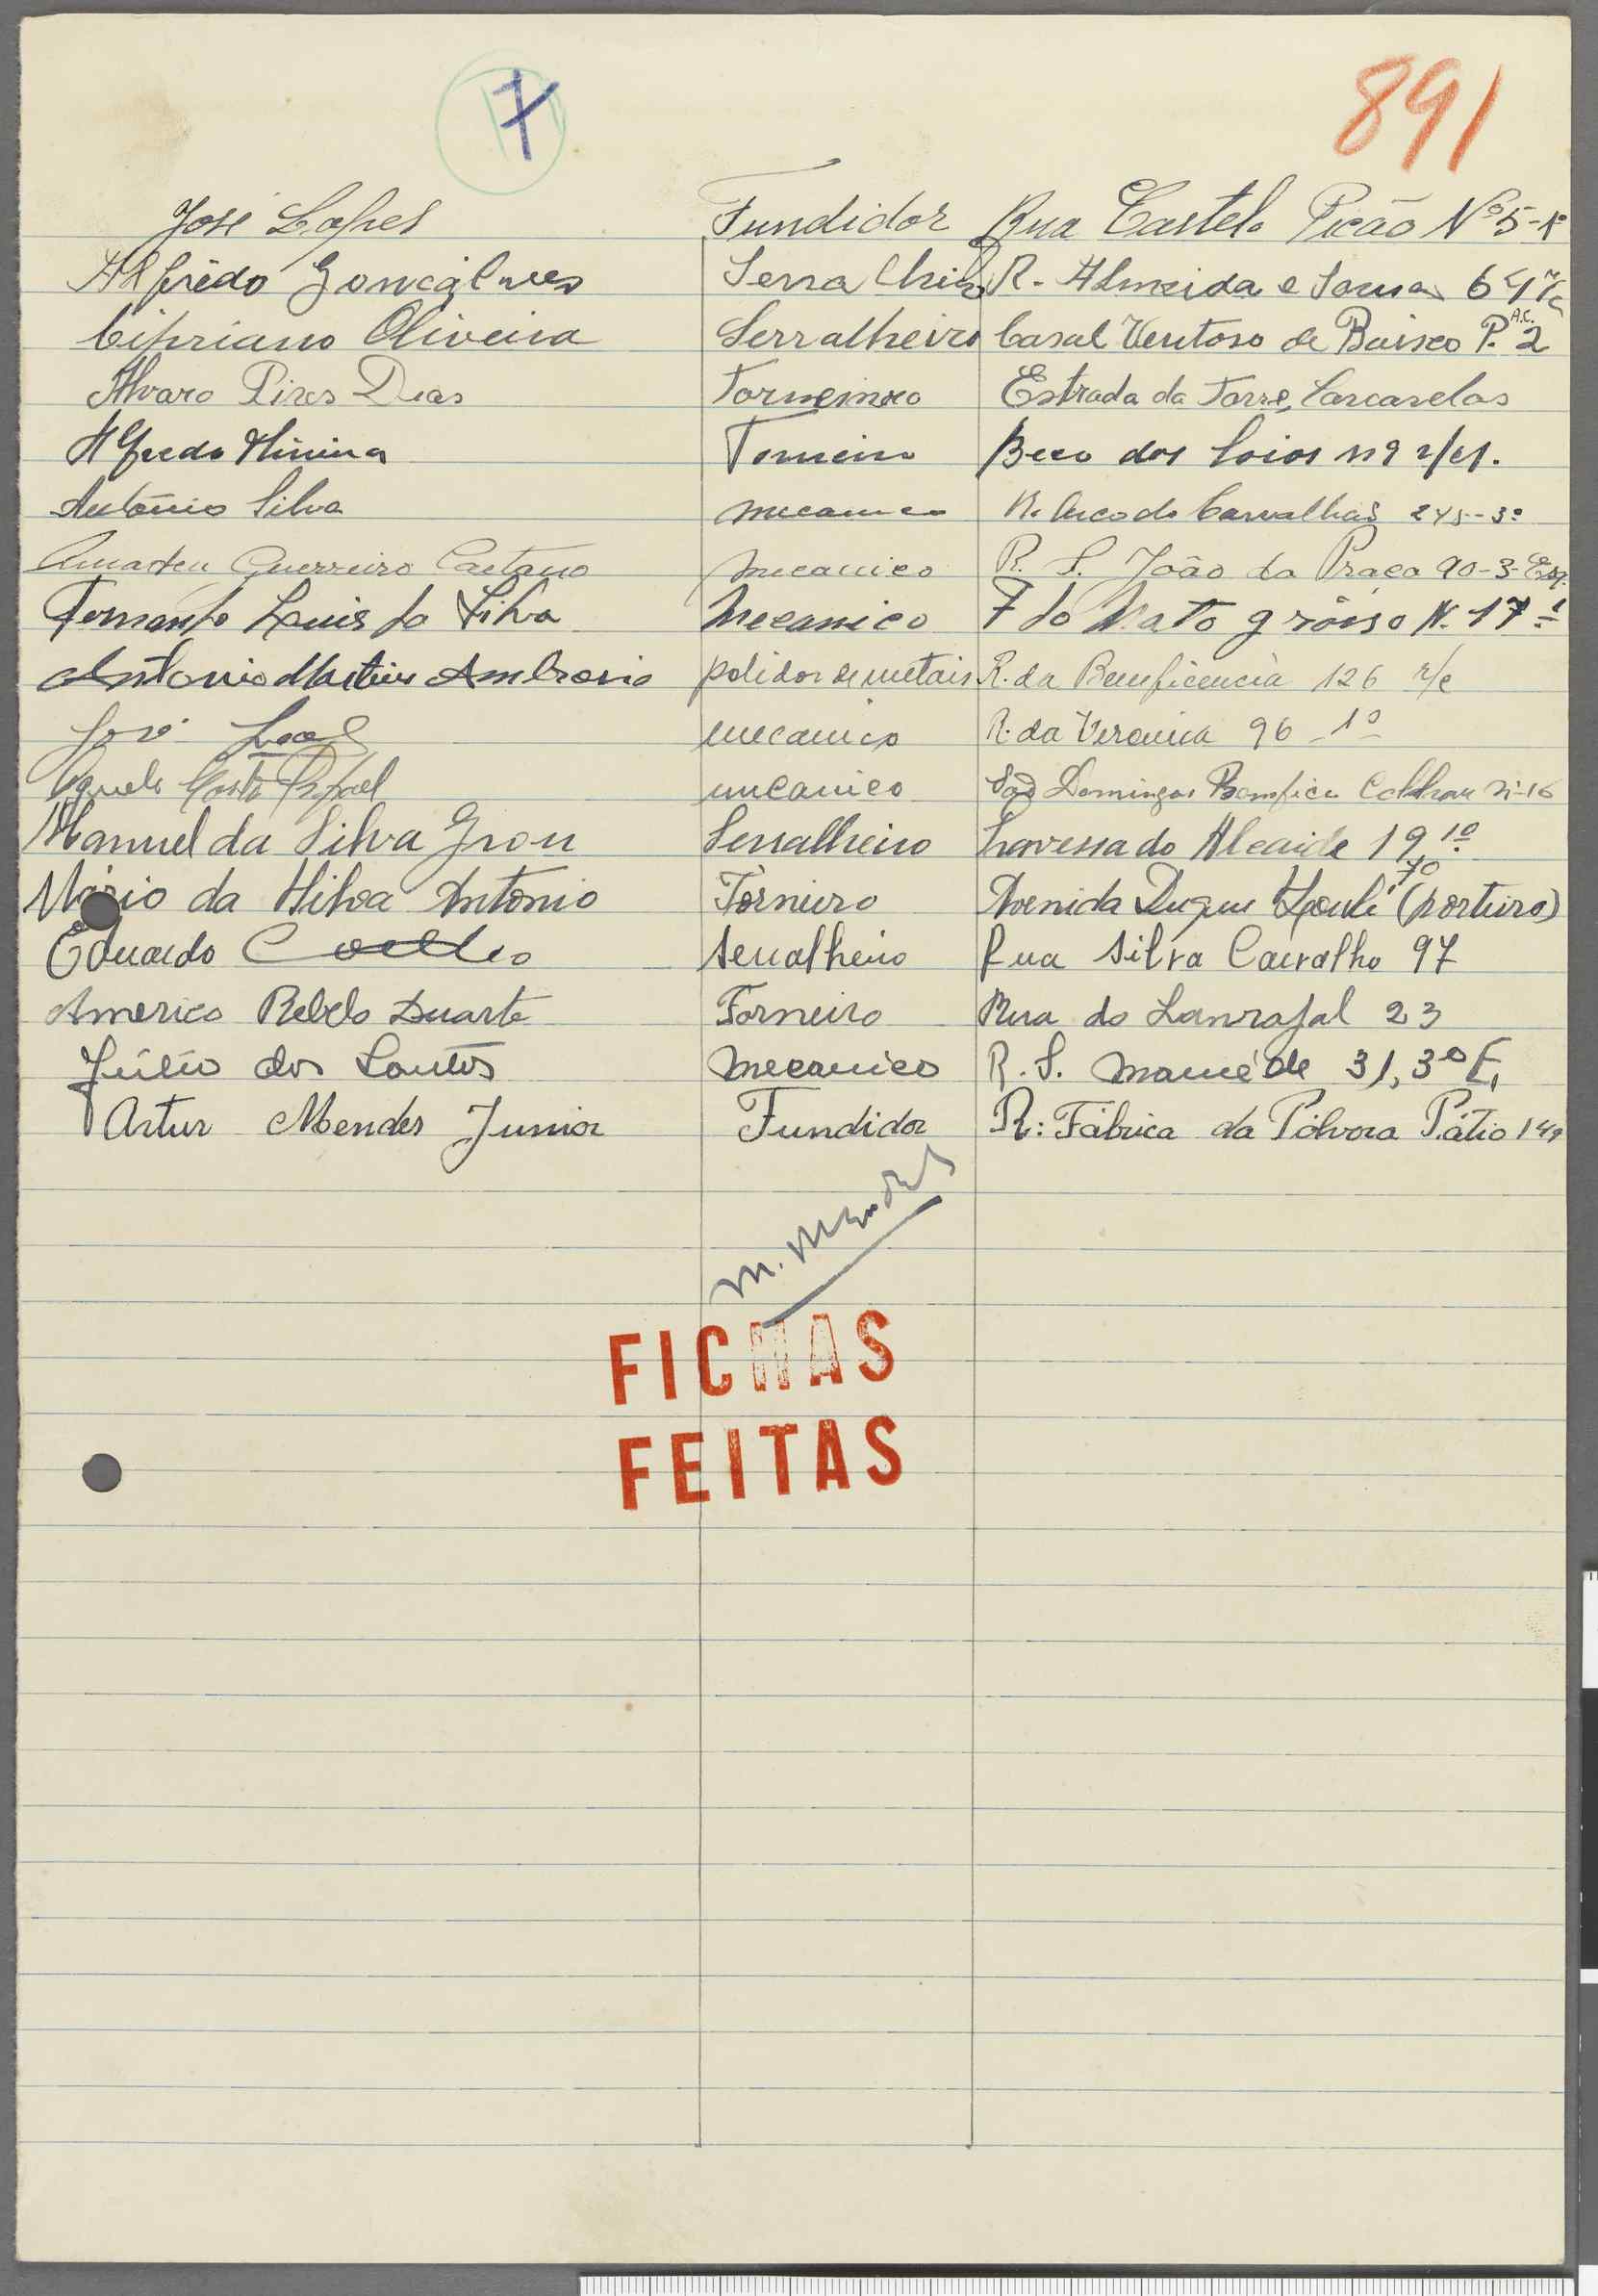 7
891
José Lopes Fundidor Rua Castelo Picão Nº 5-1º
Alfrêdo Gonçálves R. Almeida e Sousa
Cipriano Oliveira Serralheiro Casal Ventoso de Baixo P. A.C. 2
Alvaro Pires Dias Torneiro Estrada da Torre, Carcavelos
Alfredo Torneiro Beco dos Loios nº 9
António Silva mecanico R. Arco do Carvalhão 245-3º
Amadeu Guerreiro Caetano mecanico R. S. João da Praça 90-3-Esq.
Fernando Luis da Silva Mecanico T do Mato grôsso N. 17-1º
Antonio Martins Ambrosio polidor de metais R. da Beneficencia 126 r/c
José Leal mecanico R. da Veronica 96-1º
Costa mecanico São Domingos Bemfica
Manuel da Silva Serralheiro Travessa do Alcaide 19 1º
Mário da Silva Antonio Torneiro Avenida Duque Loulé 70 (porteiro)
Eduardo Coelho Serralheiro Rua Silva Carvalho 97
Americo Rebelo Duarte Torneiro Rua do 23
Júlio dos Santos Mecanico R. S. Maméde 31, 3º E,
Artur Mendes Junior Fundidor R: Fábrica da Pólvora Pátio 149
M. Mendes
FICHAS
FEITAS